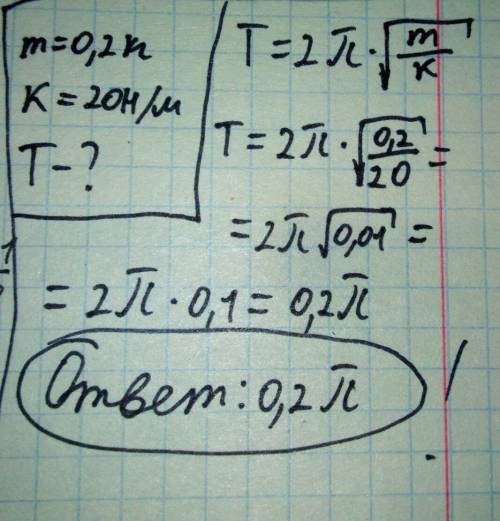 m=0,2кг
K=20Н/м
T-?
T=2π·√(m/к)
T=2π·√(0,2/20)=
=2π√0,01=
=2π·0,1=0,2π
Ответ:0,2π